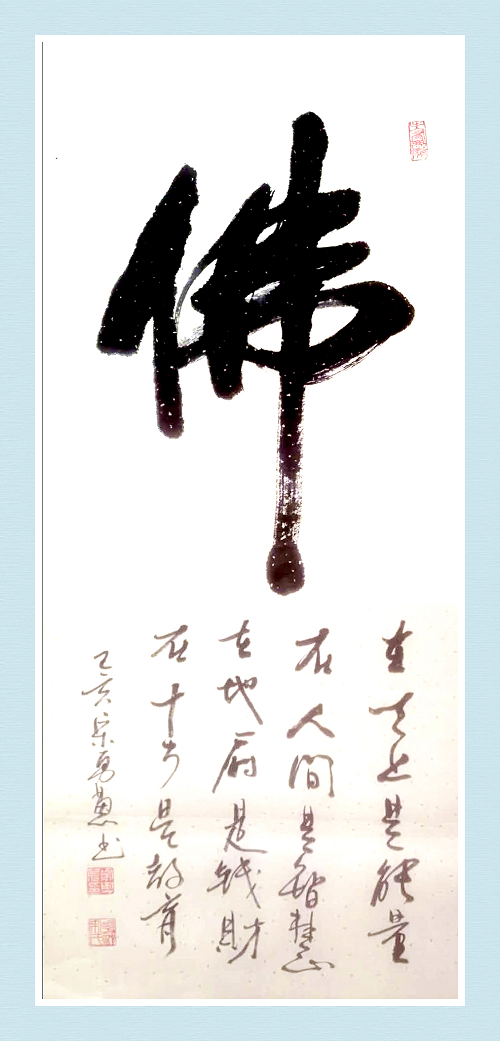 佛
在天上是能量
在人间是智慧
在地府是钱財
在十方是教育
亥宋勇慧书